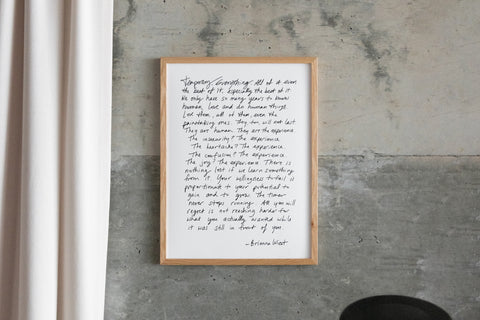 Temporary. Everything. All of it, even
the best of it. Especially the best of it.
We only have so many years to know
humans, love and do human things.
Love them, all of them, even the
painstaking ones. They too will not last.
They are human. They are the experience.
The insecurity? The experience.
The heartache? The experience.
The confusion? The experience.
The joy? The experience. There is
nothing lost if we learn something
from it. Your willingness to fail is
proportionate to your potential to
gain and to grow. The timer
never stops running. All you will
regret is not reaching harder for
what you actually wanted while
it was still in front of you.
- Brianna Wiest